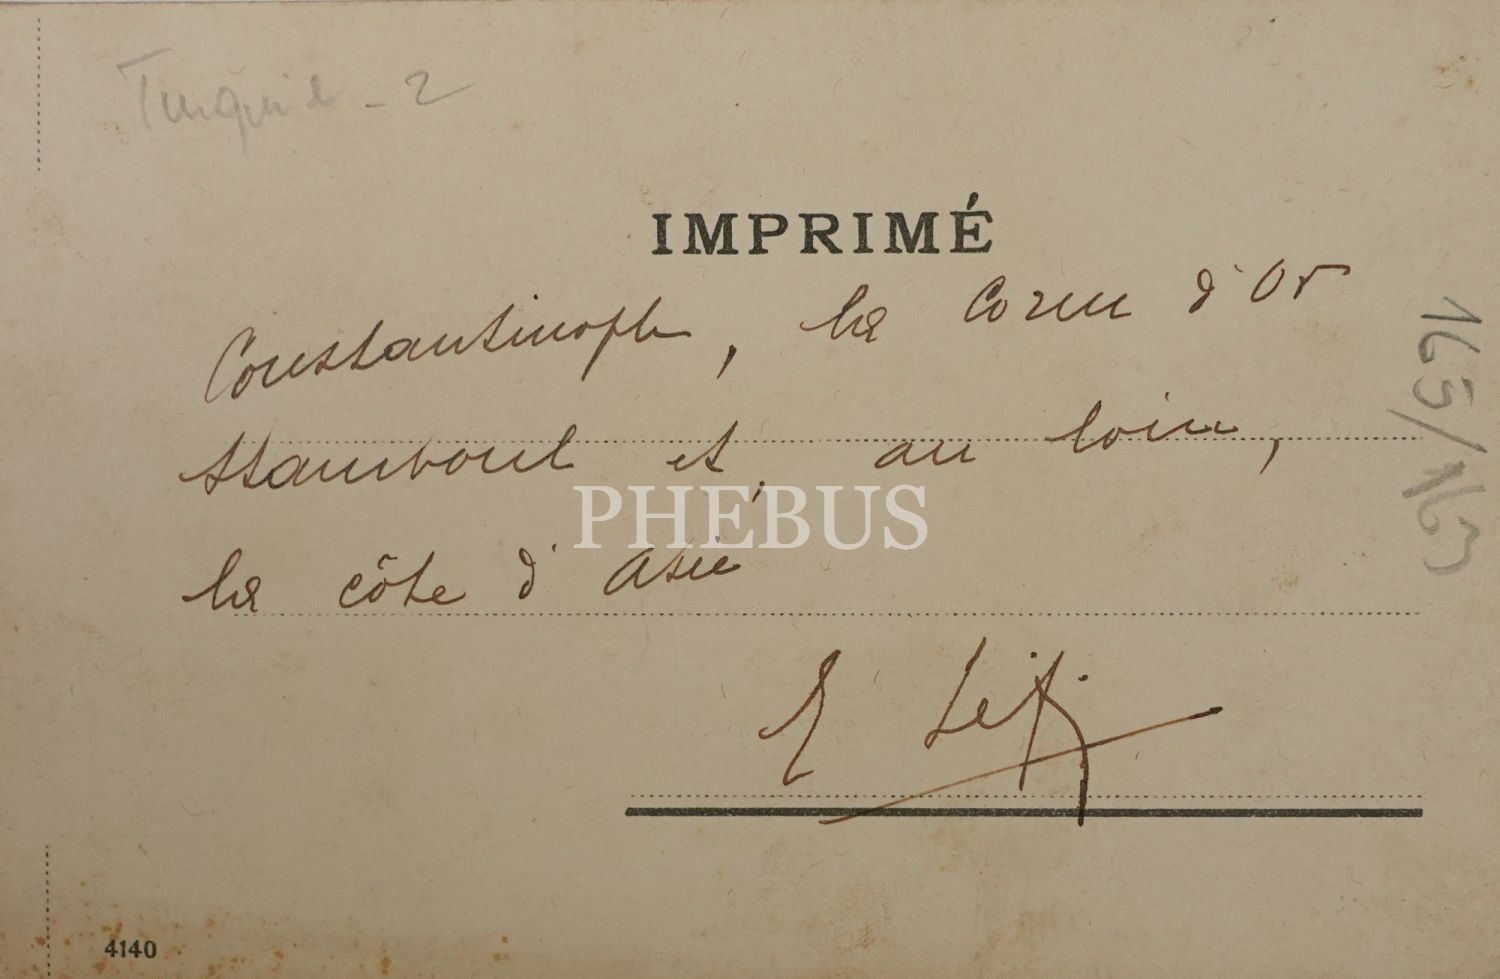 Turquie - 2
IMPRIMÉ
Constantinople, la Corne d'Or
Stamboul et, au loin,
PHEBUS
la côte d'Asie
4140